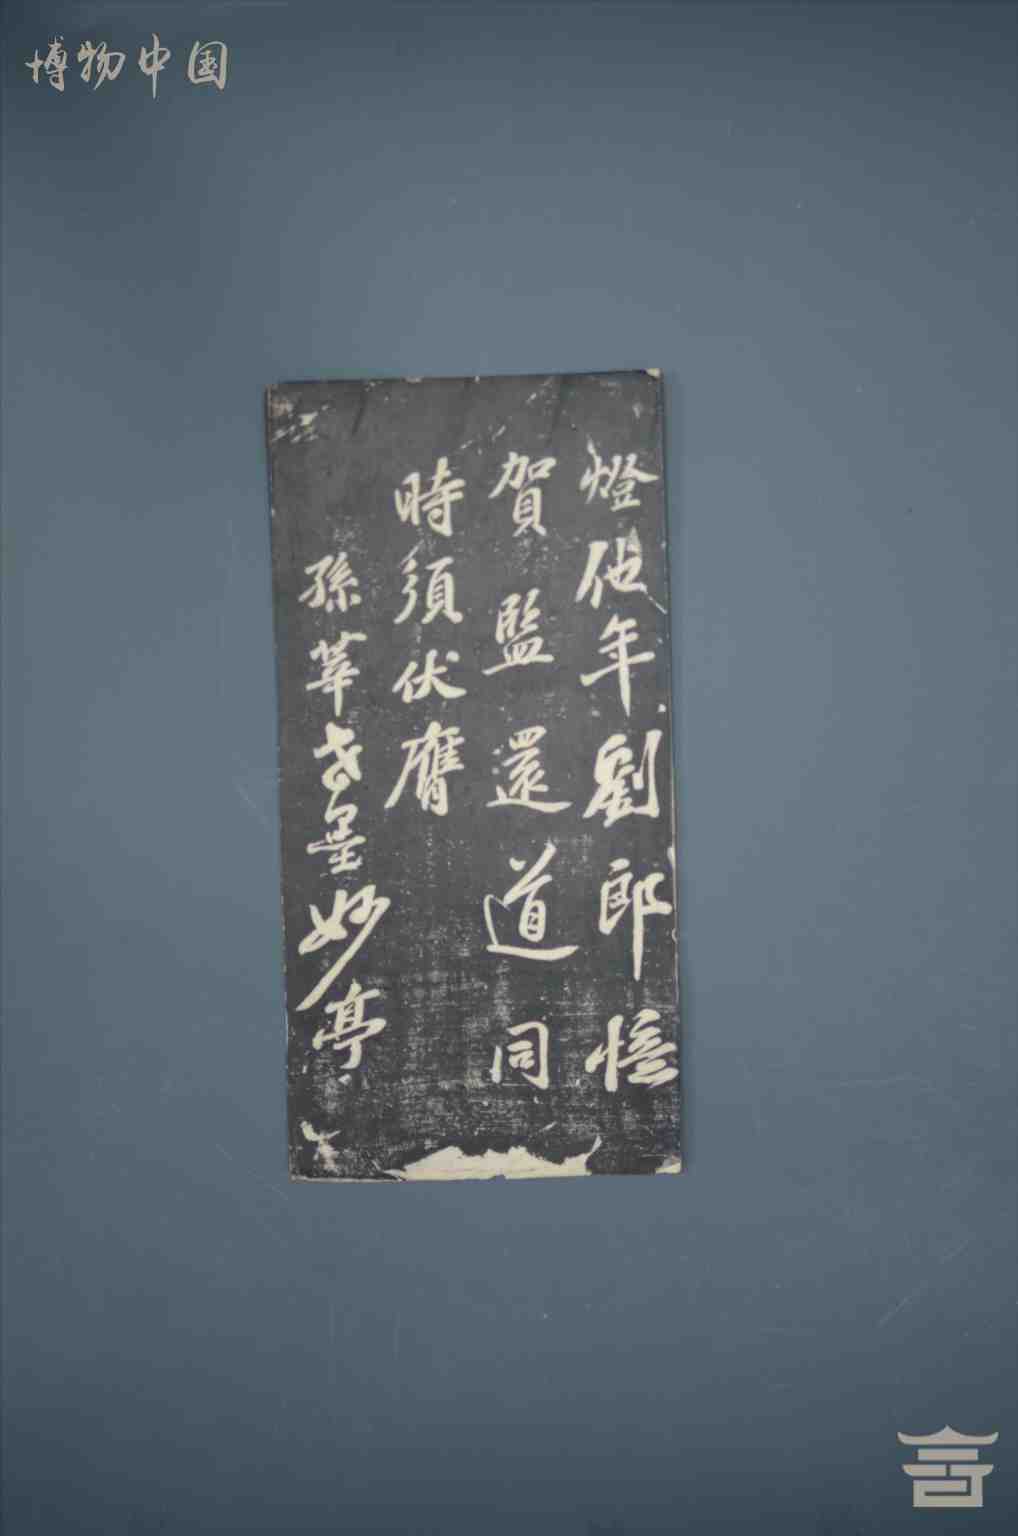 博物中国
燈他年劉郎憶
賀監還道同
時須伏膺
孫莘老墨妙亭